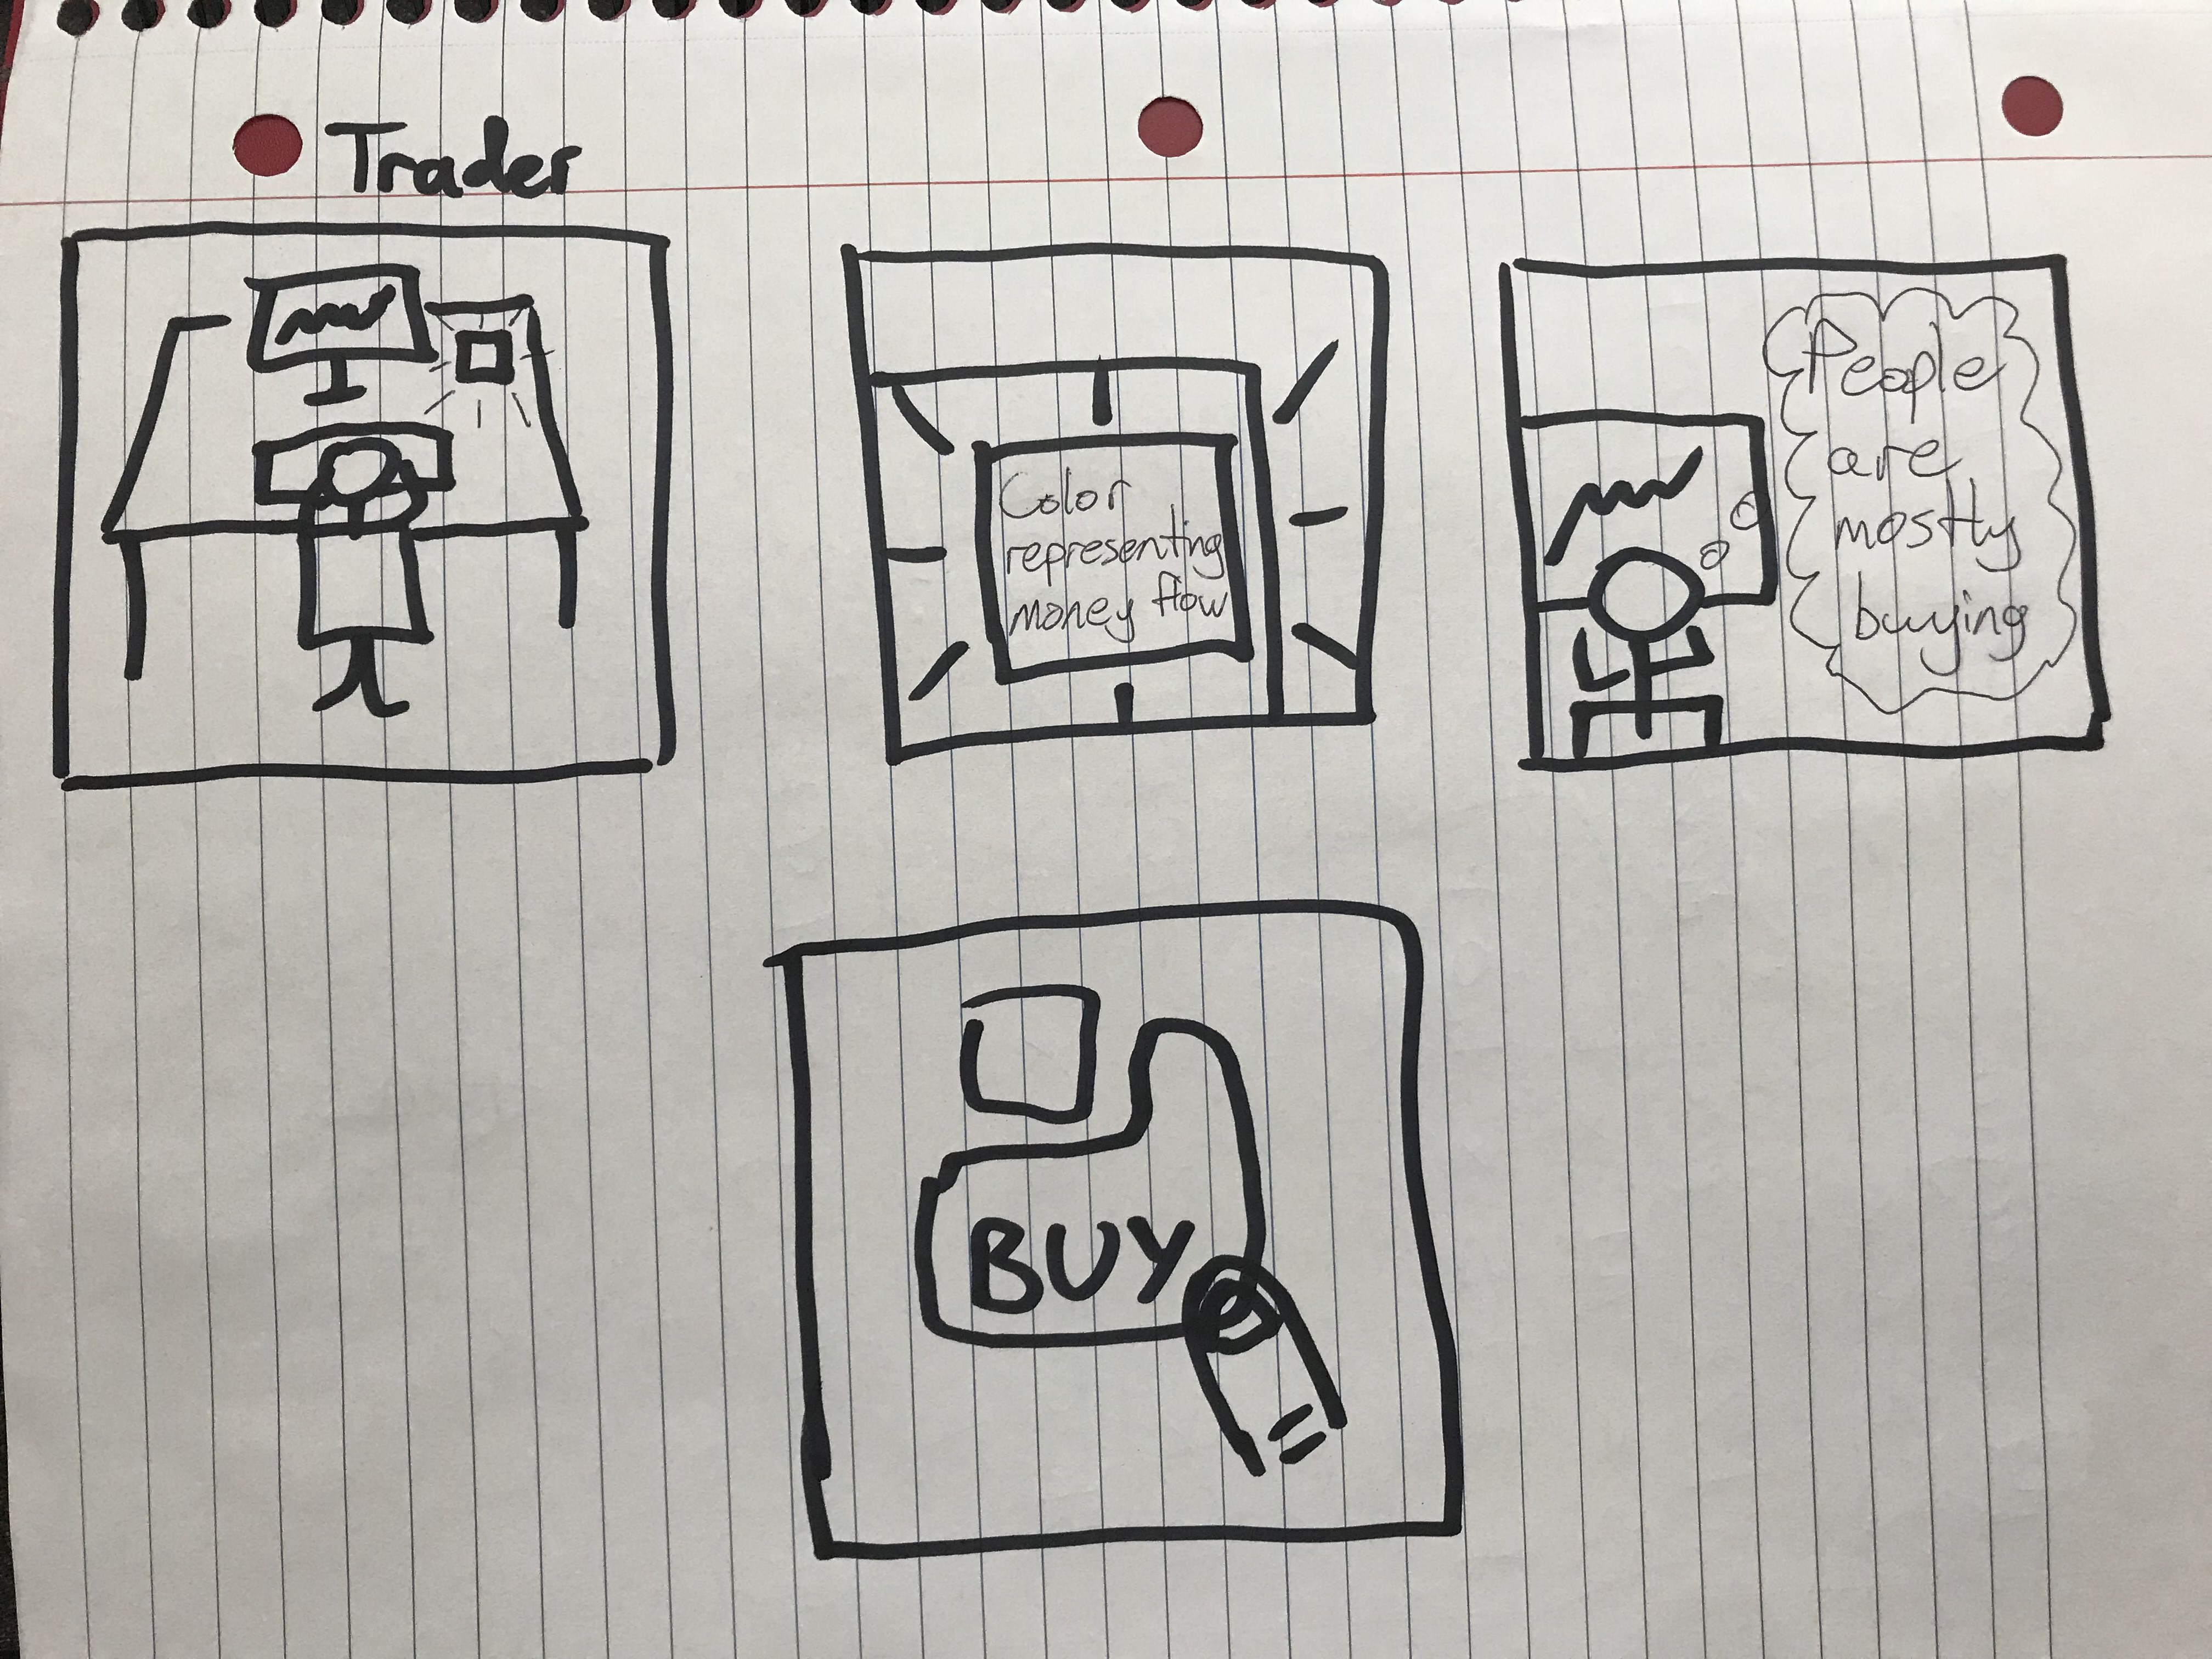 Trader
Color
representing
money flow
People
are
mostly
buying
BUY